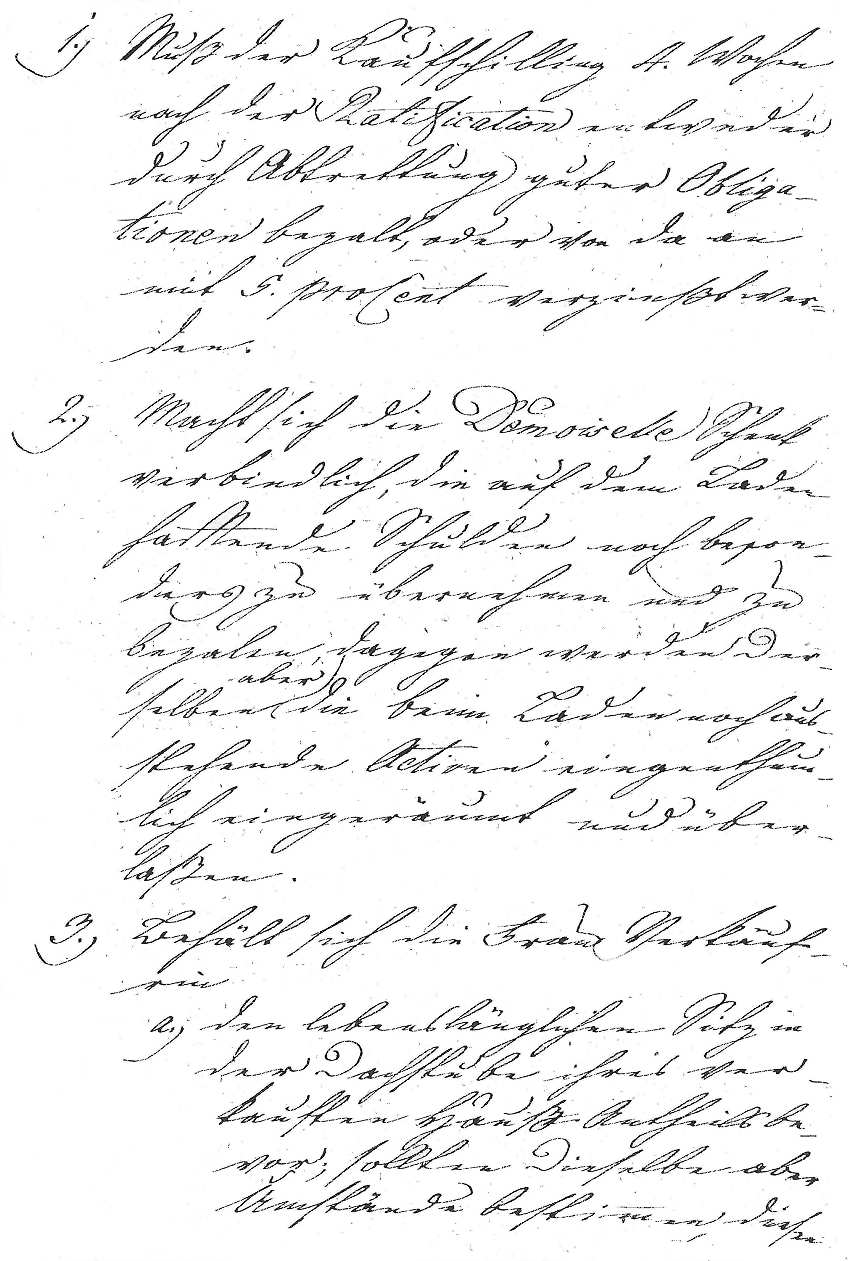 1.) Muß der Kaufschilling 4. Wochen
nach der Ratification entweder
durch Abtrettung guter Obliga-
tionen bezalt, oder von da an
mit 5. proCent verzinßt wer=
den.
2.) Macht sich die Demoiselle Schenk
verbindlich, die auf dem Laden
hafftende Schulden noch beson-
ders zu übernehmen und zu
bezalen, dagegen werden Der-
aber
selben die beim Laden noch aus-
stehende Activen eingenthum-
lich eingeräumt und über-
laßen.
3.) Behält sich die Frau Verkäuf-
rin
a.) den lebenslänglichen Sitz in
der Dachstube ihres ver-
kauften Hauß Antheils be-
vor; sollten Dieselbe aber
Umstände bestimmen, diesen